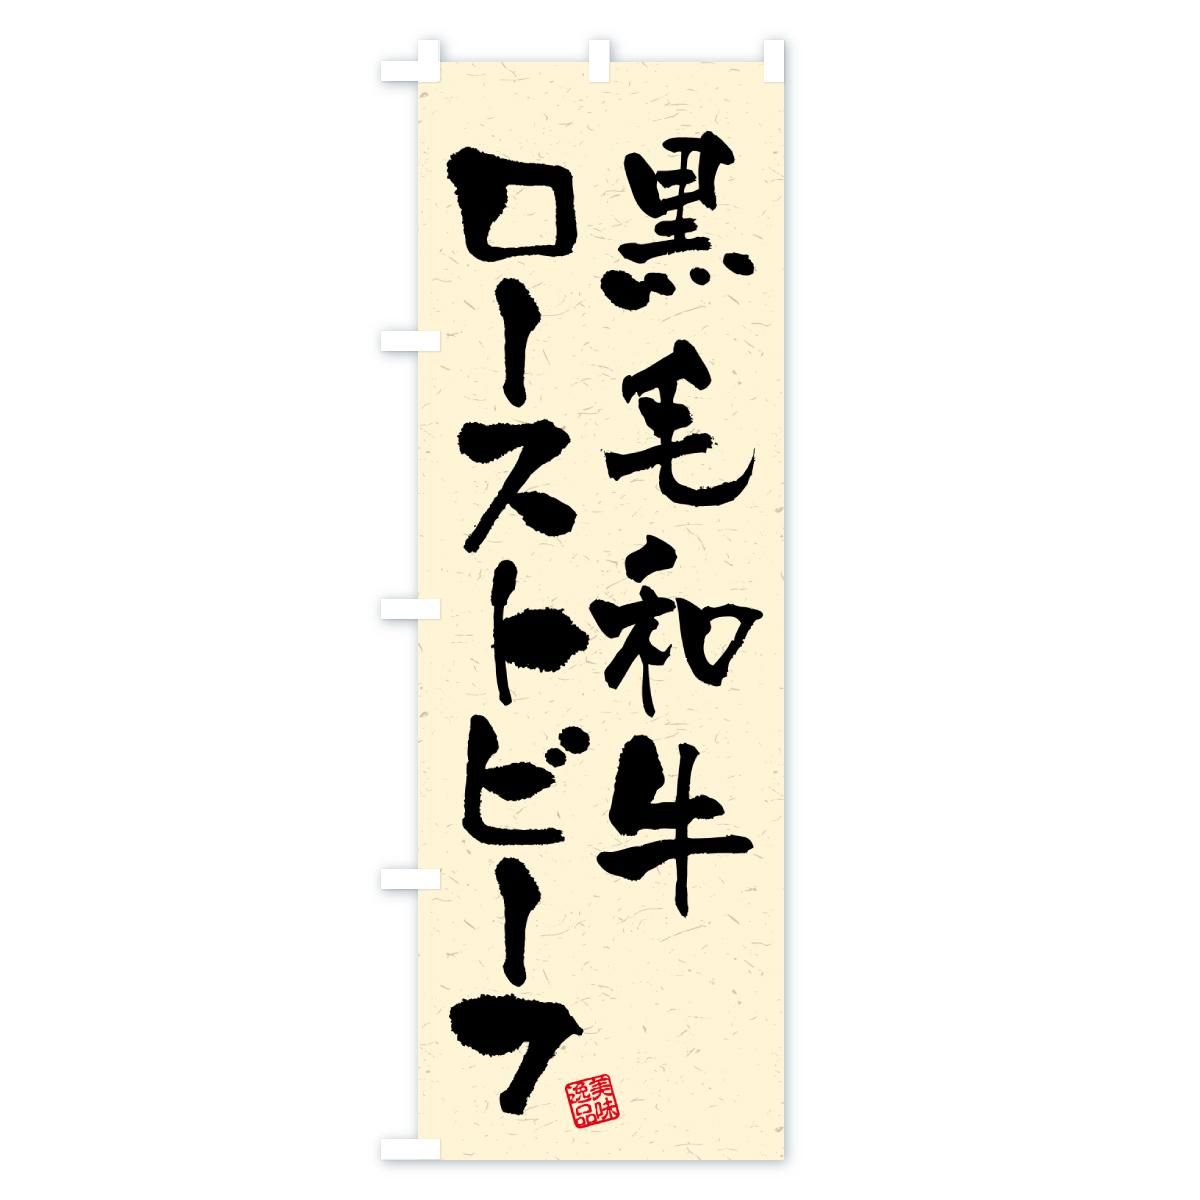 黒毛和牛
ローストビーフ
美味
逸品